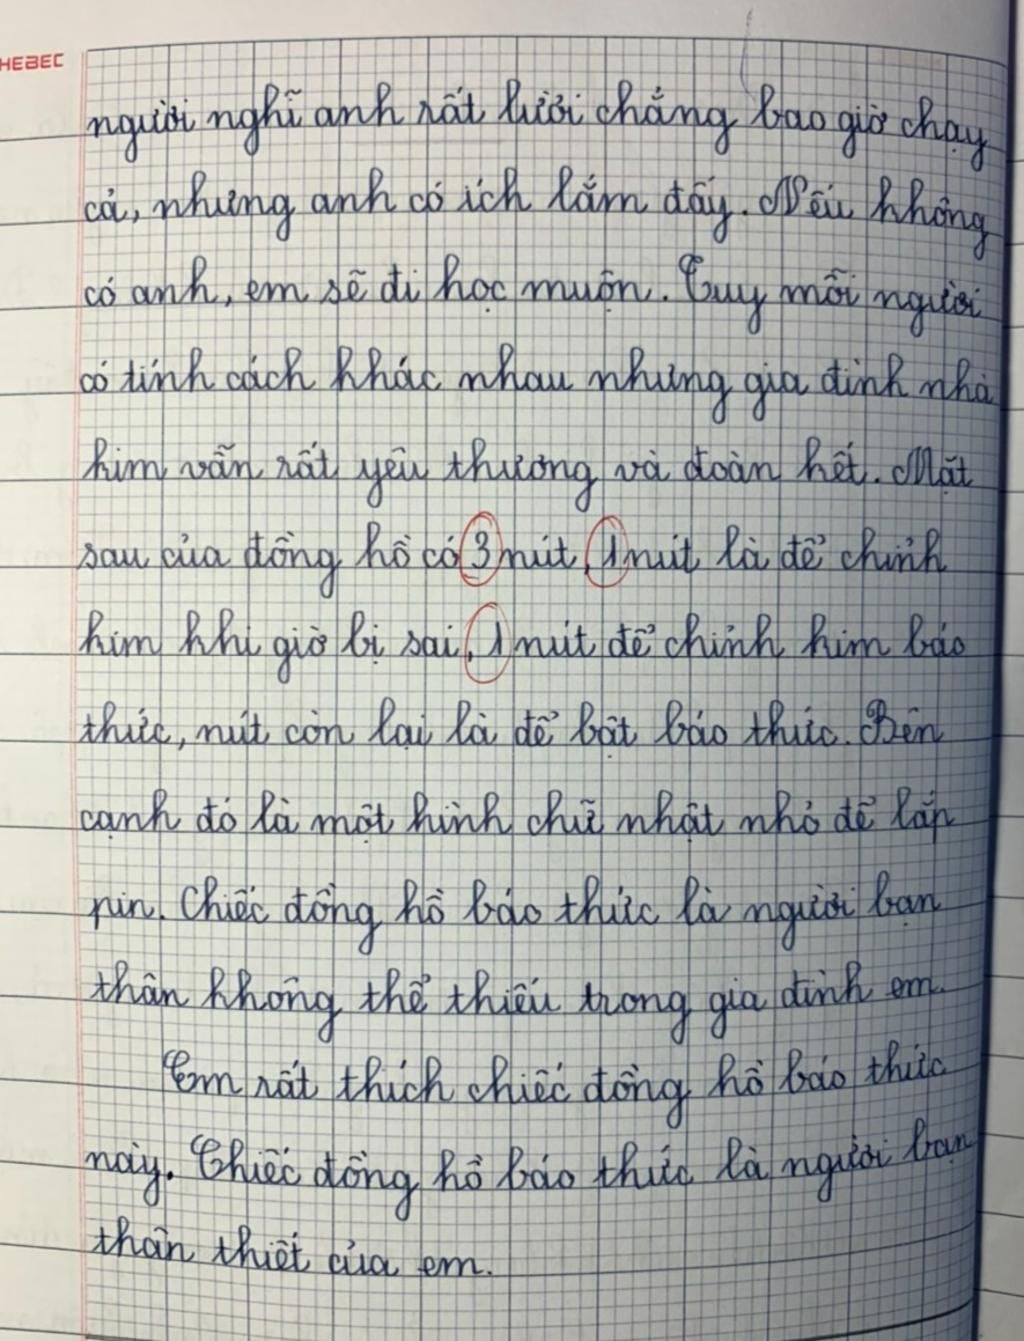 HEBEC
người nghĩ anh rất lười chẳng bao giờ chạy
cả, nhưng anh có ích lắm đấy. Nếu không
có anh, em sẽ đi học muộn. Tuy mỗi người
có tính cách khác nhau nhưng gia đình nhà
kim vẫn rất yêu thương và đoàn kết. Mặt
sau của đồng hồ có 3 nút, 1 nút là để chỉnh
kim khi giờ bị sai, 1 nút để chỉnh kim báo
thức, nút còn lại là để bật báo thức. Bên
cạnh đó là một hình chữ nhật nhỏ để lắp
pin. Chiếc đồng hồ báo thức là người bạn
thân không thể thiếu trong gia đình em.
Em rất thích chiếc đồng hồ báo thức
này. Chiếc đồng hồ báo thức là người bạn
thân thiết của em.